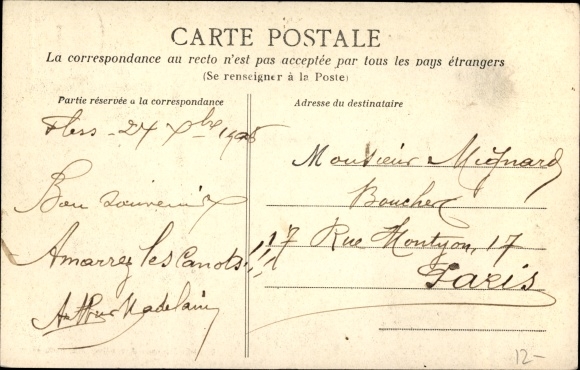 CARTE POSTALE
La correspondance au recto n'est pas acceptée par tous les pays étrangers
(Se renseigner à la Poste)
Partie réservée à la correspondance
Flers - 24 Xbre
Bon souvenir
Amarrez les Canots !!!
Arthur Madelain
Adresse du destinataire
Monsieur Mignard
Boucher
17 Rue Montyon, 17
Paris
12-